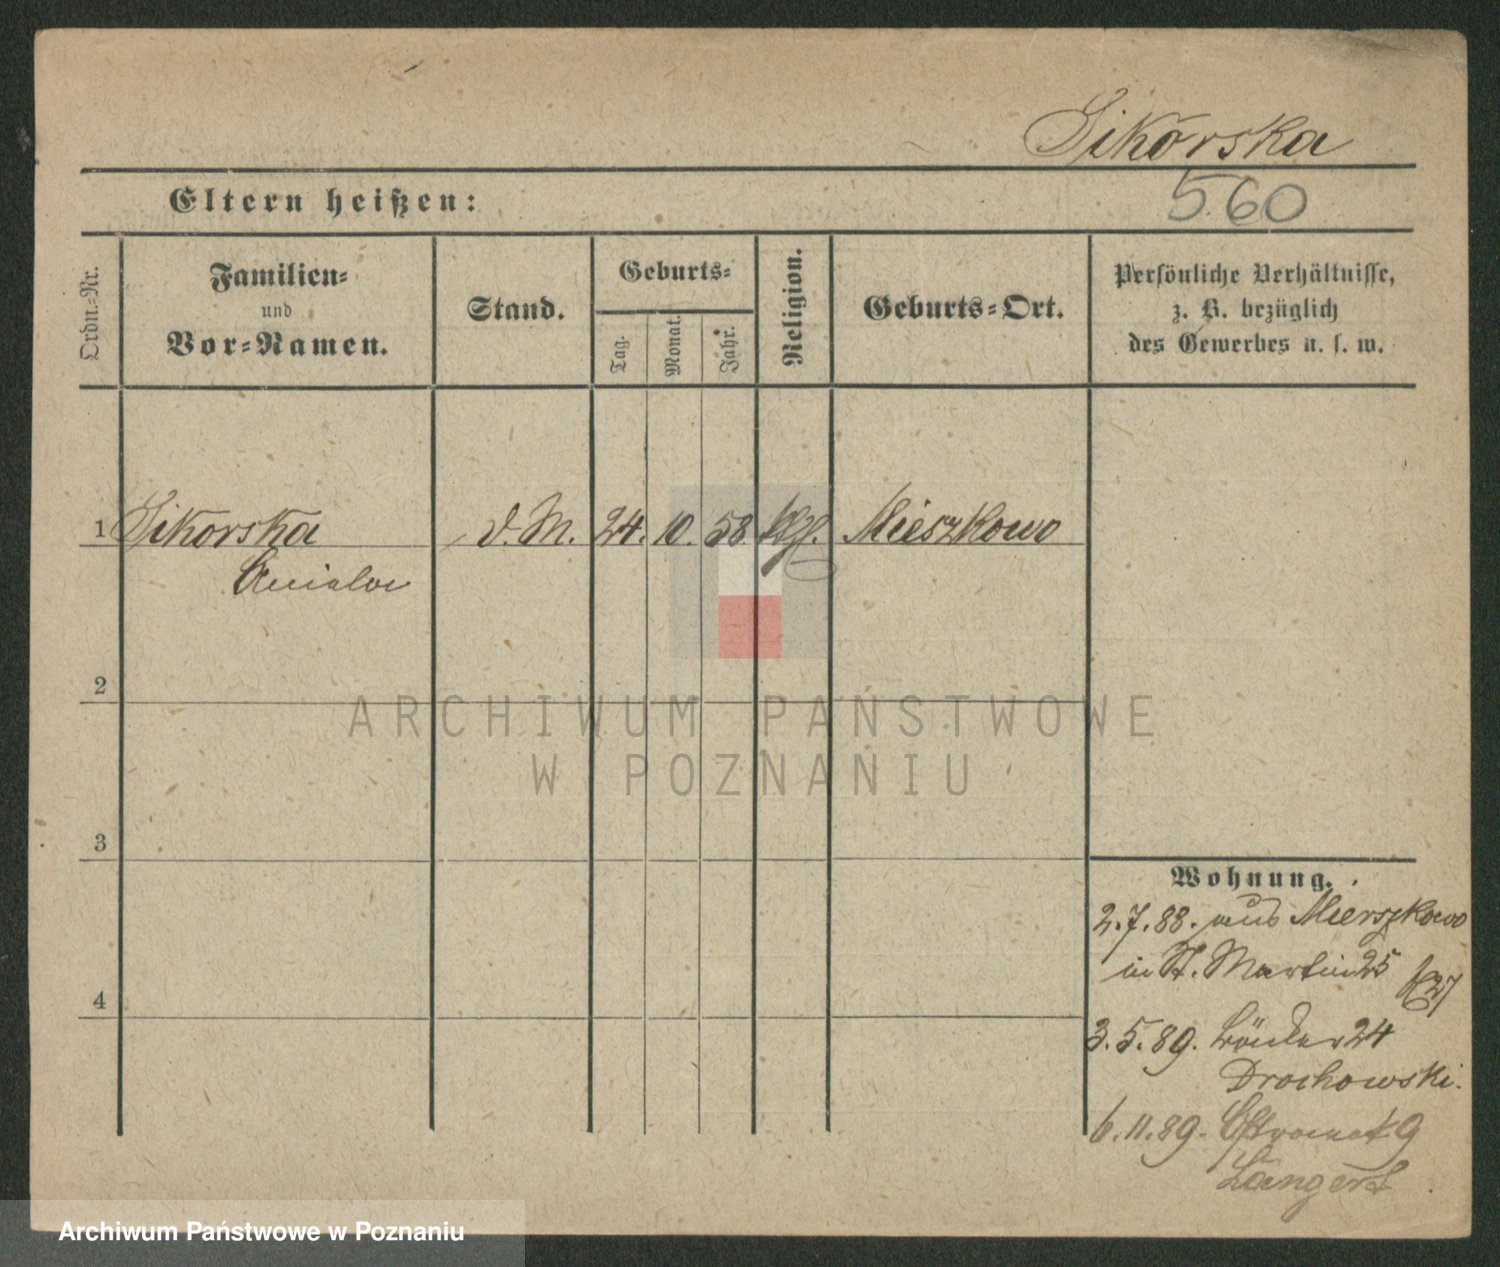 Sikorska
560
Eltern heißen:
Ordn.-Nr.
Familien-
und
Vor-Namen.
Stand.
Geburts-
Tag.
Monat.
Jahr.
Religion.
Geburts-Ort.
Persönliche Verhältnisse,
z. B. bezüglich
des Gewerbes u. s. w.
1 Sikorska d. M. 24. 10. 58. Mieszkowo
2
ARCHIWUM PAŃSTWOWE
W POZNANIU
3
Wohnung.
2.7.88. aus Mierszkowo
in St. Martin 25
4
3.5.89. Bäcker 24
Drochowski.
6.11.89. 9
Langert
Archiwum Państwowe w Poznaniu